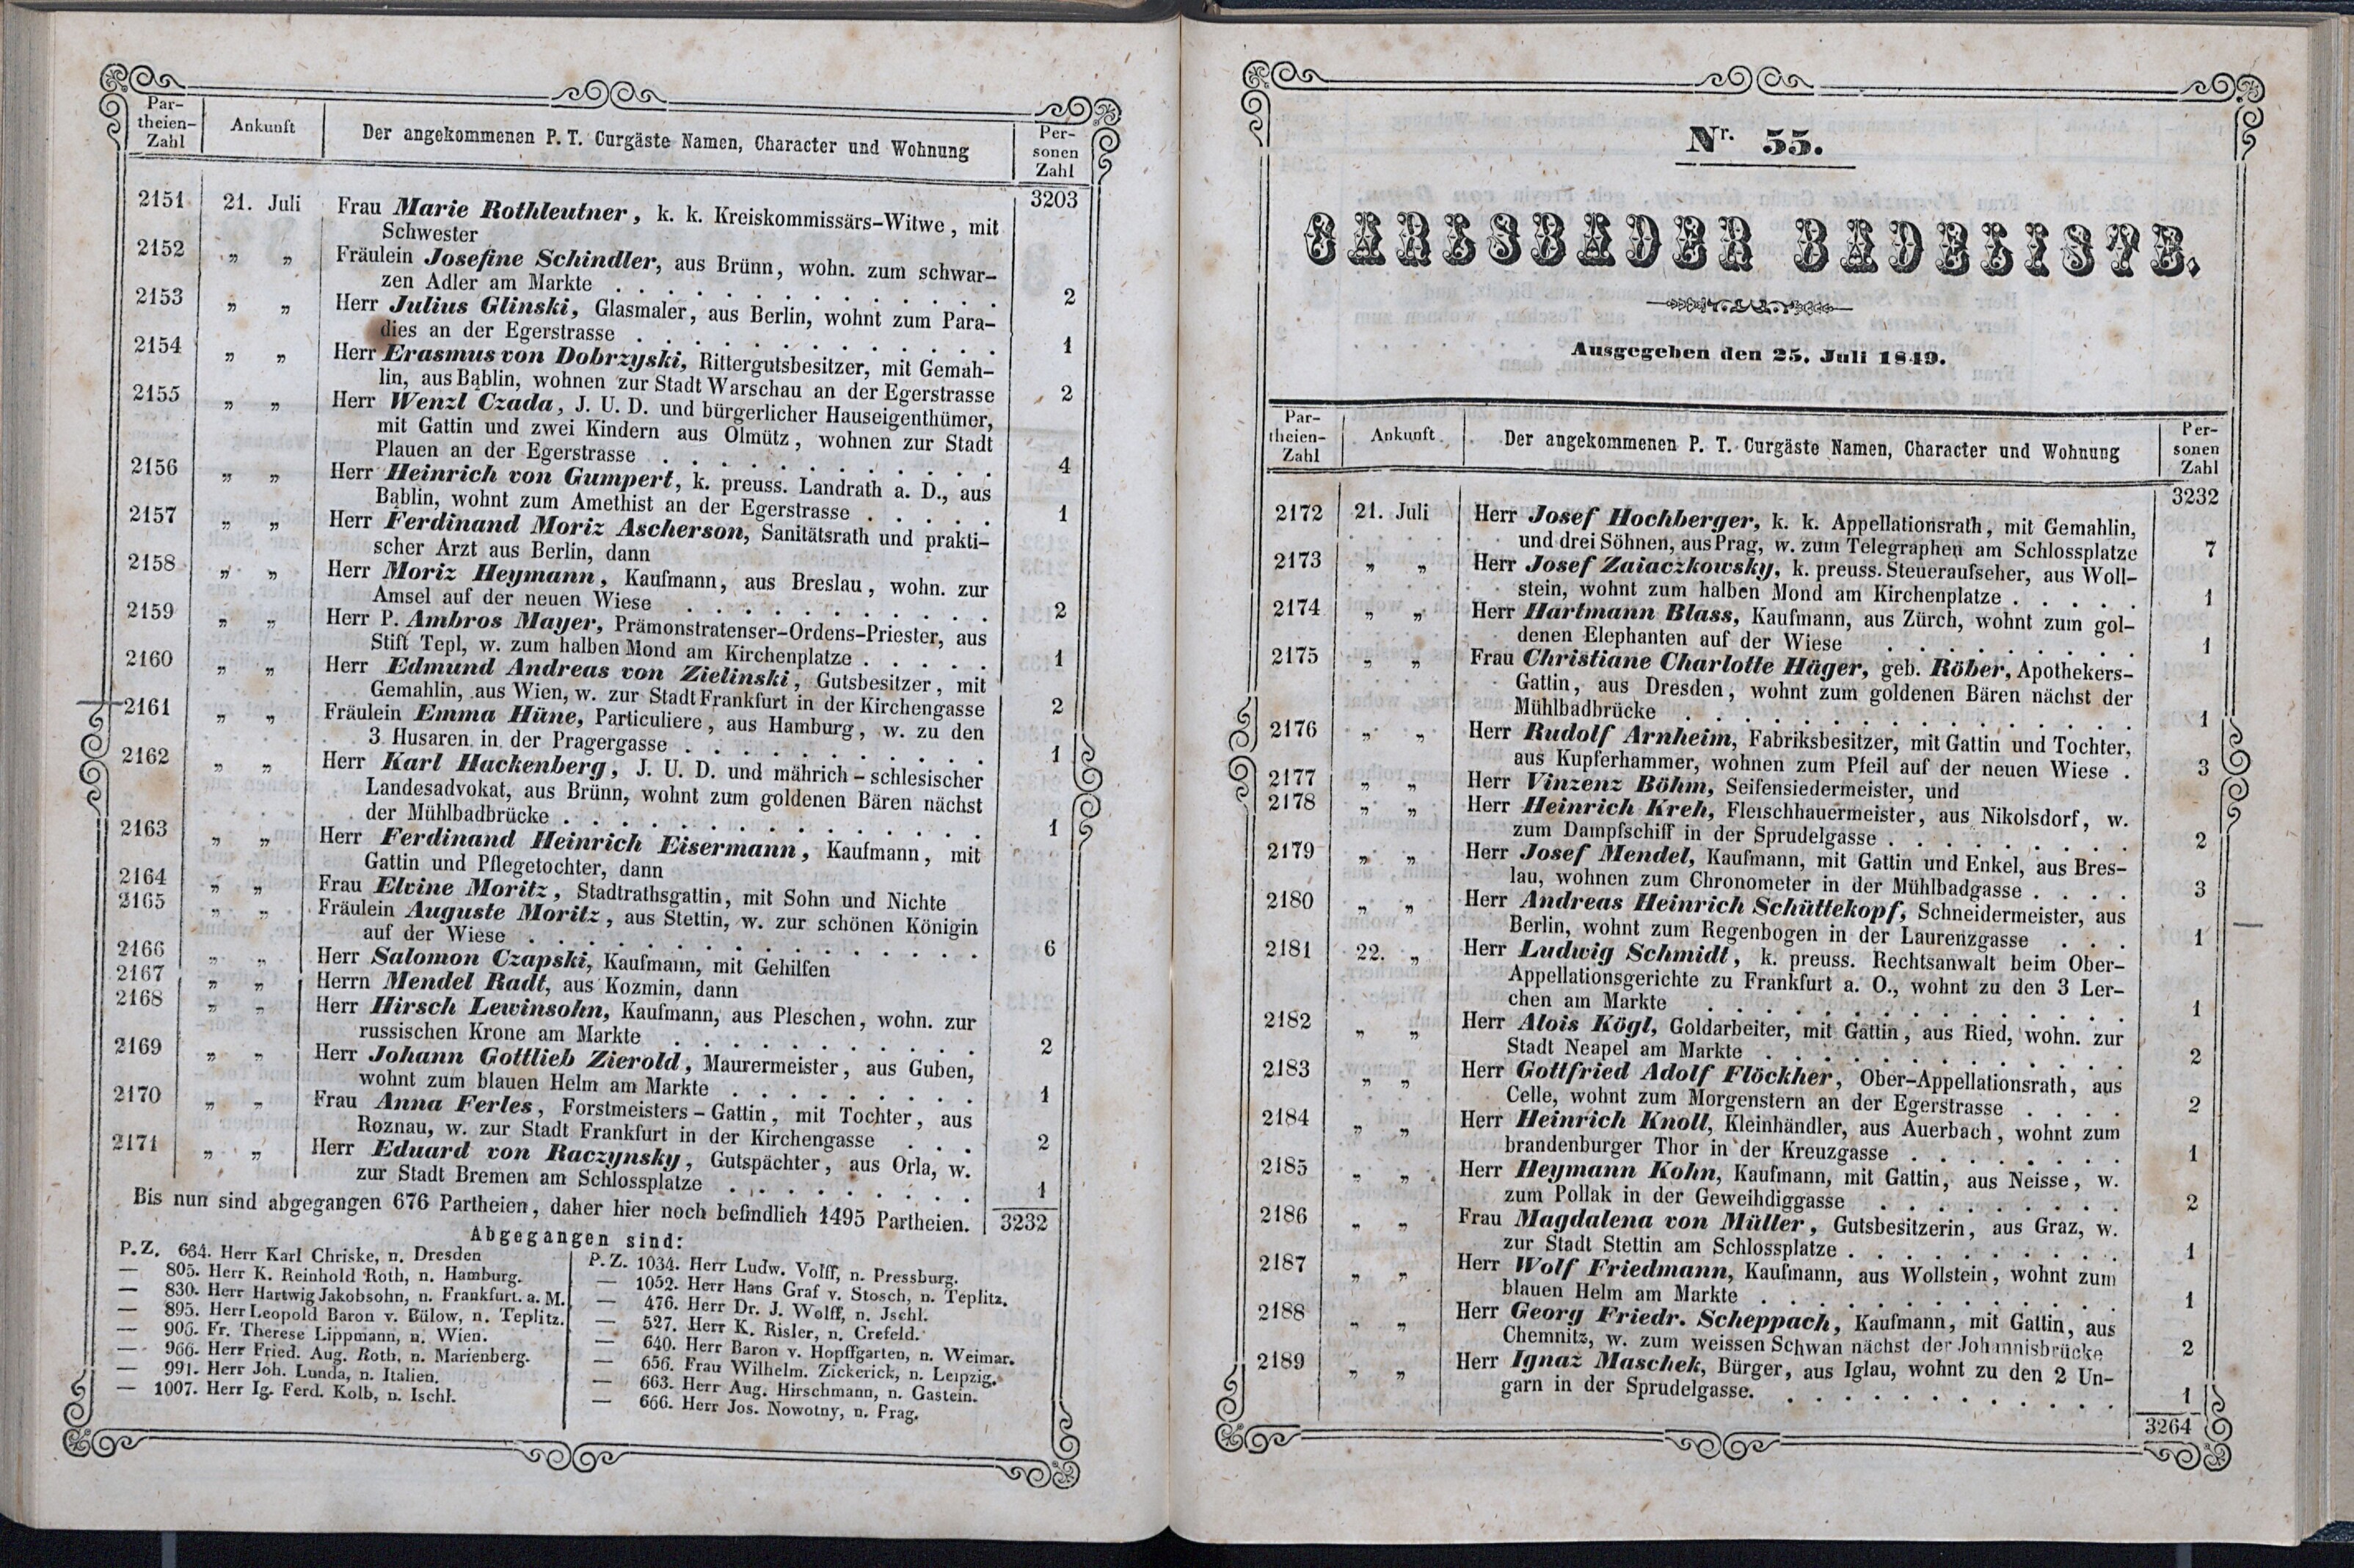 Par-
theien-
Zahl
Ankunft
Der angekommenen P. T. Curgäste Namen, Character und Wohnung
Per-
sonen
Zahl
3203
2151 21. Juli Frau Marie Rothleutner, k. k. Kreiskommissärs-Witwe, mit
Schwester
2152 „ „ Fräulein Josefine Schindler, aus Brünn, wohn. zum schwar-
zen Adler am Markte . . . . . . . . . . . . . 2
2153 „ „ Herr Julius Glinski, Glasmaler, aus Berlin, wohnt zum Para-
dies an der Egerstrasse . . . . . . . . . . . . 1
2154 „ „ Herr Erasmus von Dobrzyski, Rittergutsbesitzer, mit Gemah-
lin, aus Bąblin, wohnen zur Stadt Warschau an der Egerstrasse 2
2155 „ „ Herr Wenzl Czada, J. U. D. und bürgerlicher Hauseigenthümer,
mit Gattin und zwei Kindern aus Olmütz, wohnen zur Stadt
Plauen an der Egerstrasse . . . . . . . . . . . 4
2156 „ „ Herr Heinrich von Gumpert, k. preuss. Landrath a. D., aus
Bąblin, wohnt zum Amethist an der Egerstrasse . . . . . 1
2157 „ „ Herr Ferdinand Moriz Ascherson, Sanitätsrath und prakti-
scher Arzt aus Berlin, dann
2158 „ „ Herr Moriz Heymann, Kaufmann, aus Breslau, wohn. zur
Amsel auf der neuen Wiese . . . . . . . . . . 2
2159 „ „ Herr P. Ambros Mayer, Prämonstratenser-Ordens-Priester, aus
Stift Tepl, w. zum halben Mond am Kirchenplatze . . . . . 1
2160 „ „ Herr Edmund Andreas von Zielinski, Gutsbesitzer, mit
Gemahlin, aus Wien, w. zur Stadt Frankfurt in der Kirchengasse 2
2161 „ „ Fräulein Emma Hüne, Particuliere, aus Hamburg, w. zu den
3 Husaren in der Pragergasse . . . . . . . . . . 1
2162 „ „ Herr Karl Hackenberg, J. U. D. und mährich-schlesischer
Landesadvokat, aus Brünn, wohnt zum goldenen Bären nächst
der Mühlbadbrücke . . . . . . . . . . . . . . 1
2163 „ „ Herr Ferdinand Heinrich Eisermann, Kaufmann, mit
Gattin und Pflegetochter, dann
2164 „ „ Frau Elvine Moritz, Stadtrathsgattin, mit Sohn und Nichte
2165 „ „ Fräulein Auguste Moritz, aus Stettin, w. zur schönen Königin
auf der Wiese . . . . . . . . . . . . . . . 6
2166 „ „ Herr Salomon Czapski, Kaufmann, mit Gehilfen
2167 „ „ Herrn Mendel Radt, aus Kozmin, dann
2168 „ „ Herr Hirsch Lewinsohn, Kaufmann, aus Pleschen, wohn. zur
russischen Krone am Markte . . . . . . . . . . 2
2169 „ „ Herr Johann Gottlieb Zierold, Maurermeister, aus Guben,
wohnt zum blauen Helm am Markte . . . . . . . . . 1
2170 „ „ Frau Anna Ferles, Forstmeisters-Gattin, mit Tochter, aus
Roznau, w. zur Stadt Frankfurt in der Kirchengasse . . . 2
2171 „ „ Herr Eduard von Raczynsky, Gutspächter, aus Orla, w.
zur Stadt Bremen am Schlossplatze . . . . . . . . . 1
Bis nun sind abgegangen 676 Partheien, daher hier noch befindlich 1495 Partheien. 3232
Abgegangen sind:
P. Z. 684. Herr Karl Chriske, n. Dresden
— 805. Herr K. Reinhold Roth, n. Hamburg.
— 830. Herr Hartwig Jakobsohn, n. Frankfurt. a. M.
— 895. Herr Leopold Baron v. Bülow, n. Teplitz.
— 906. Fr. Therese Lippmann, n. Wien.
— 966. Herr Fried. Aug. Roth, n. Marienberg.
— 991. Herr Joh. Lunda, n. Italien.
— 1007. Herr Ig. Ferd. Kolb, n. Ischl.
P. Z. 1034. Herr Ludw. Volff, n. Pressburg.
— 1052. Herr Hans Graf v. Stosch, n. Teplitz.
— 476. Herr Dr. J. Wolff, n. Jschl.
— 527. Herr K. Risler, n. Crefeld.
— 640. Herr Baron v. Hopffgarten, n. Weimar.
— 656. Frau Wilhelm. Zickerick, n. Leipzig.
— 663. Herr Aug. Hirschmann, n. Gastein.
— 666. Herr Jos. Nowotny, n. Prag.
Nr. 55.
CARLSBADER BADELISTE.
Ausgegeben den 25. Juli 1849.
Par-
theien-
Zahl
Ankunft
Der angekommenen P. T. Curgäste Namen, Character und Wohnung
Per-
sonen
Zahl
3232
2172 21. Juli Herr Josef Hochberger, k. k. Appellationsrath, mit Gemahlin,
und drei Söhnen, aus Prag, w. zum Telegraphen am Schlossplatze 7
2173 „ „ Herr Josef Zaiaczkowsky, k. preuss. Steueraufseher, aus Woll-
stein, wohnt zum halben Mond am Kirchenplatze . . . . . 1
2174 „ „ Herr Hartmann Blass, Kaufmann, aus Zürch, wohnt zum gol-
denen Elephanten auf der Wiese . . . . . . . . . 1
2175 „ „ Frau Christiane Charlotte Häger, geb. Röber, Apothekers-
Gattin, aus Dresden, wohnt zum goldenen Bären nächst der
Mühlbadbrücke . . . . . . . . . . . . . . . 1
2176 „ „ Herr Rudolf Arnheim, Fabriksbesitzer, mit Gattin und Tochter,
aus Kupferhammer, wohnen zum Pfeil auf der neuen Wiese . 3
2177 „ „ Herr Vinzenz Böhm, Seifensiedermeister, und
2178 „ „ Herr Heinrich Kreh, Fleischhauermeister, aus Nikolsdorf, w.
zum Dampfschiff in der Sprudelgasse . . . . . . . . 2
2179 „ „ Herr Josef Mendel, Kaufmann, mit Gattin und Enkel, aus Bres-
lau, wohnen zum Chronometer in der Mühlbadgasse . . . . 3
2180 „ „ Herr Andreas Heinrich Schüttekopf, Schneidermeister, aus
Berlin, wohnt zum Regenbogen in der Laurenzgasse . . . 1
2181 22. „ Herr Ludwig Schmidt, k. preuss. Rechtsanwalt beim Ober-
Appellationsgerichte zu Frankfurt a. O., wohnt zu den 3 Ler-
chen am Markte . . . . . . . . . . . . . . 1
2182 „ „ Herr Alois Kögl, Goldarbeiter, mit Gattin, aus Ried, wohn. zur
Stadt Neapel am Markte . . . . . . . . . . . . 2
2183 „ „ Herr Gottfried Adolf Flöckher, Ober-Appellationsrath, aus
Celle, wohnt zum Morgenstern an der Egerstrasse . . . . 2
2184 „ „ Herr Heinrich Knoll, Kleinhändler, aus Auerbach, wohnt zum
brandenburger Thor in der Kreuzgasse . . . . . . . 1
2185 „ „ Herr Heymann Kohn, Kaufmann, mit Gattin, aus Neisse, w.
zum Pollak in der Geweihdiggasse . . . . . . . . . 2
2186 „ „ Frau Magdalena von Müller, Gutsbesitzerin, aus Graz, w.
zur Stadt Stettin am Schlossplatze . . . . . . . . . 1
2187 „ „ Herr Wolf Friedmann, Kaufmann, aus Wollstein, wohnt zum
blauen Helm am Markte . . . . . . . . . . . . 1
2188 „ „ Herr Georg Friedr. Scheppach, Kaufmann, mit Gattin, aus
Chemnitz, w. zum weissen Schwan nächst der Johannisbrücke 2
2189 „ „ Herr Ignaz Maschek, Bürger, aus Iglau, wohnt zu den 2 Un-
garn in der Sprudelgasse. . . . . . . . . . . . . 1
3264